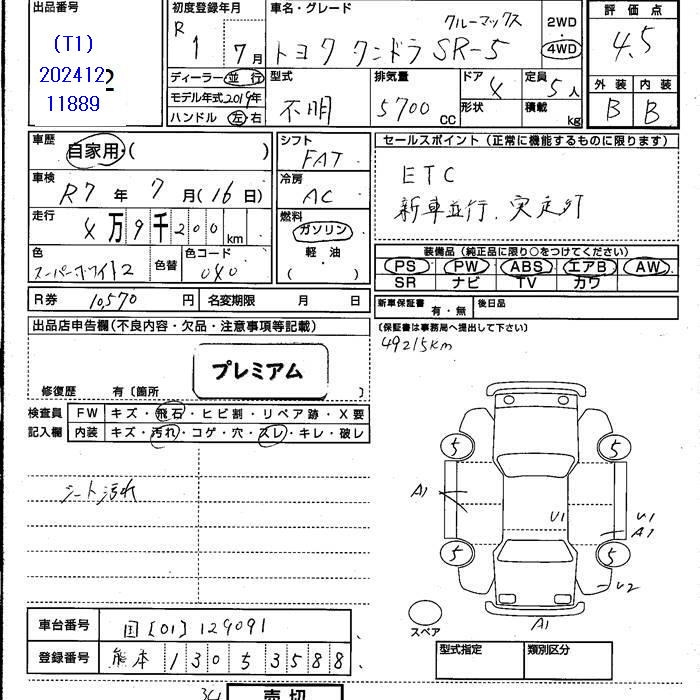 出品番号
(T1)
202412
11889
初度登録年月
R 1 7 月
ディーラー・並行
モデル年式 2019年
ハンドル 左・右
車名・グレード
クルーマックス
トヨタ タンドラ SR-5
2WD
4WD
型式 不明
排気量 5700 cc
ドア 4
形状
定員 5 人
積載 kg
評価点
4.5
外装 内装
B B
車歴 自家用・( )
車検 R7 年 7 月(16日)
走行 4万9千200 km
色 スーパーホワイト2
色替
色コード 040
シフト FAT
冷房 AC
燃料 ガソリン
軽油
( )
R券 10,570 円 名変期限 月 日
セールスポイント(正常に機能するものに限ります)
ETC
新車並行、実走行
装備品(純正品に限り○をつけてください)
PS PW ABS エアB AW
SR ナビ TV カワ
新車保証書 有・無 後日品
(保証書は事務局へ提出して下さい)
49215km
出品店申告欄(不良内容・欠品・注意事項等記載)
プレミアム
修復歴 有〔箇所 〕
検査員 FW キズ・飛石・ヒビ割・リペア跡・X要
記入欄 内装 キズ・汚れ・コゲ・穴・スレ・キレ・破レ
シート汚れ
5 5
A1
U1
U1
A1
5 5
U2
スペア
A1
車台番号 国[01]129091
登録番号 熊本 130 5 3588
型式指定 類別区分
34
売切